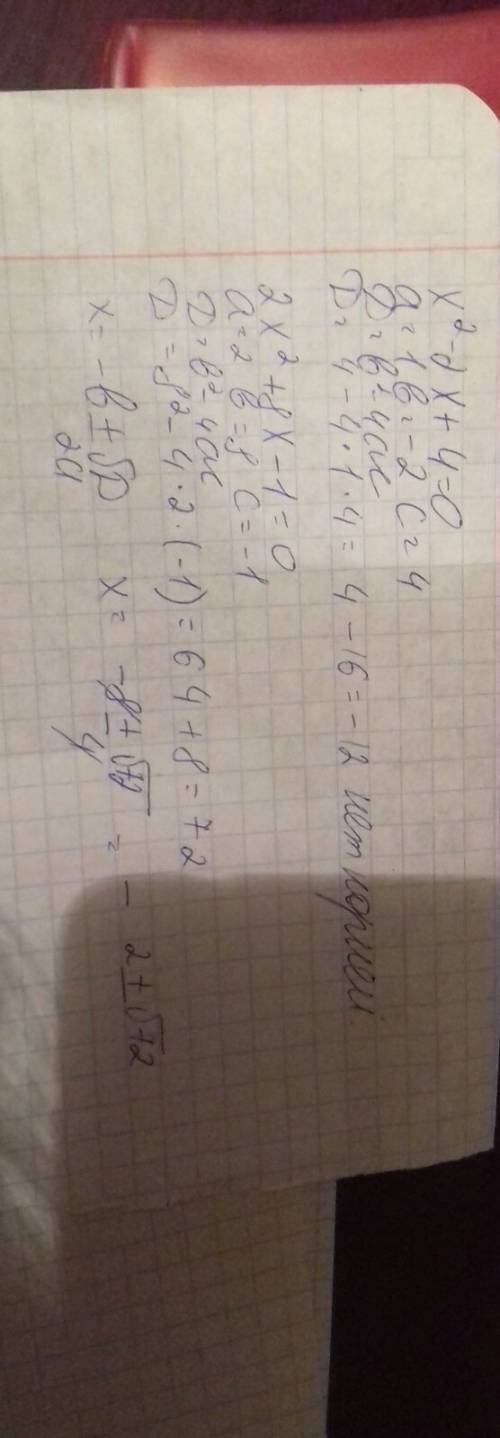 x² - 2x + 4 = 0
a = 1 в = -2 c = 4
D = в² - 4ac
D = 4 - 4·1·4 = 4 - 16 = -12 нет корней
2x² + 8x - 1 = 0
a = 2 в = 8 c = -1
D = в² - 4ac
D = 8² - 4·2·(-1) = 64 + 8 = 72
x = -в ± √D / 2a x = -8 ± √72 / 4 = - 2 ± √72